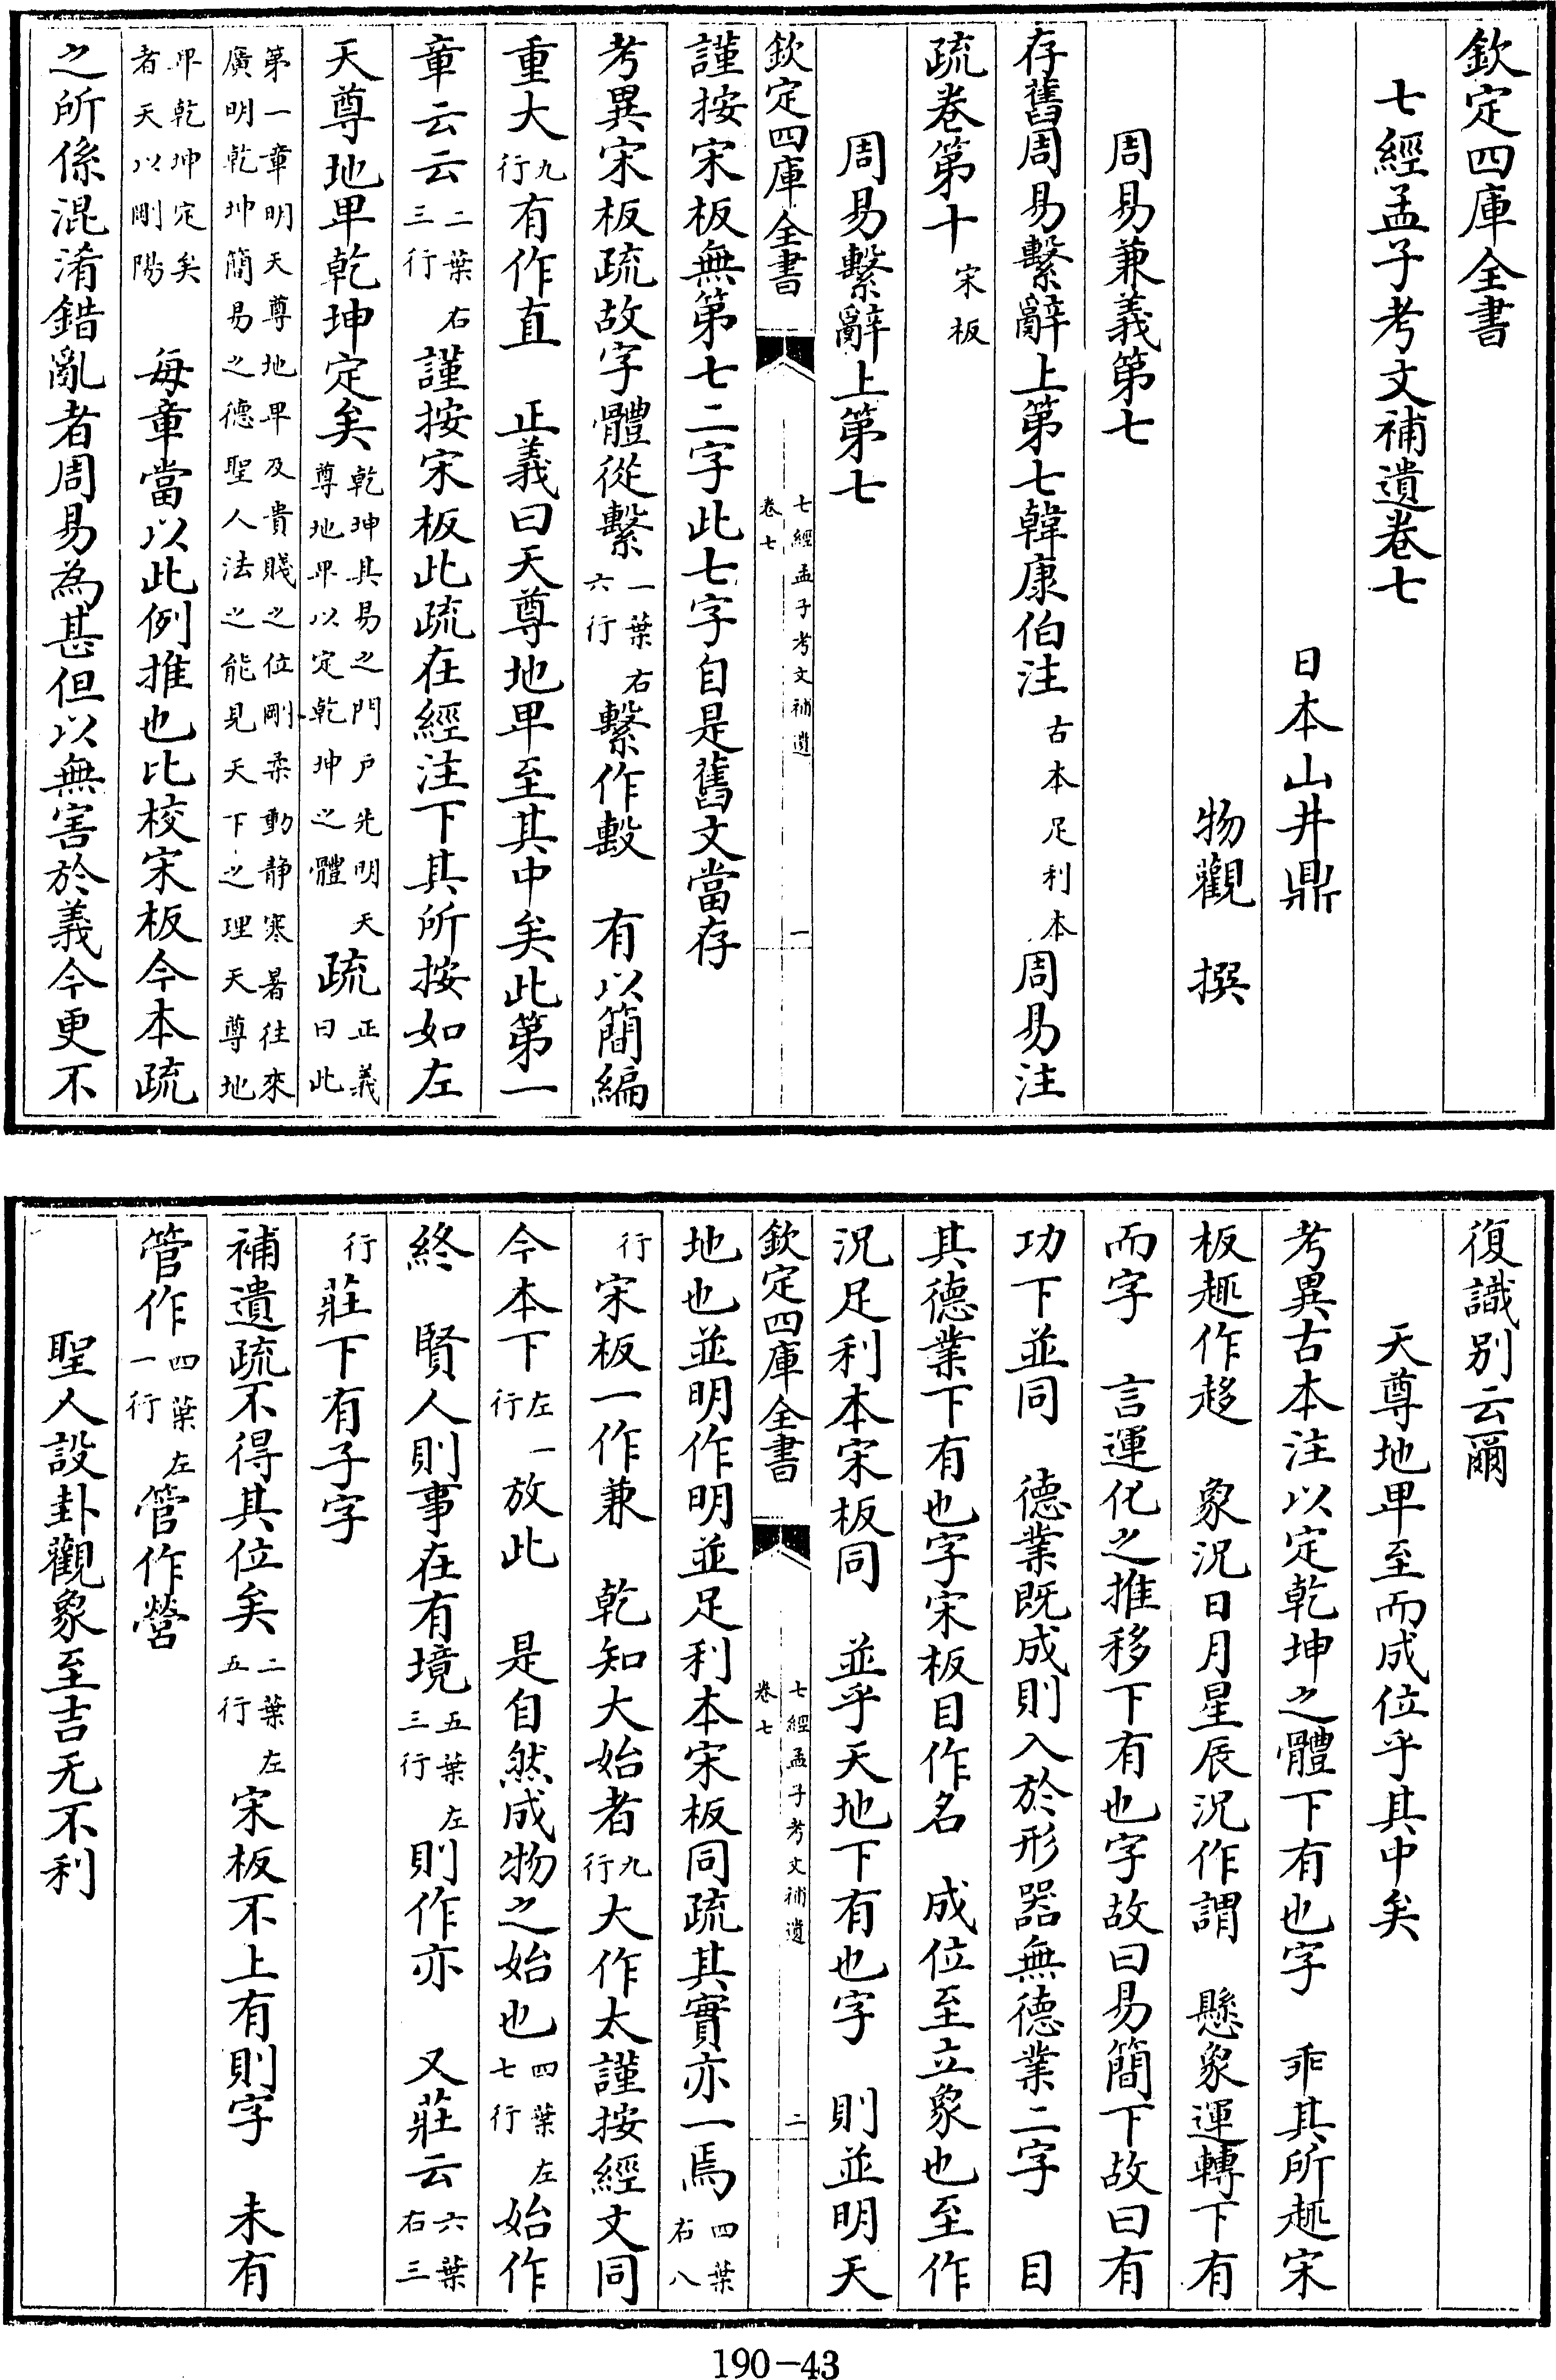 欽定四庫全書
七經孟子考文補遺卷七
日本山井鼎
物觀 撰
周易兼義第七
存舊周易繫辭上第七韓康伯注古本足利本周易注
疏卷第十宋板
周易繫辭上第七
欽定四庫全書 七經孟子考文補遺 卷七 一
謹按宋板無第七二字此七字自是舊文當存
考異宋板疏故字體從繫一葉右六行繫作毄 有以簡編
重大九行有作直 正義曰天尊地卑至其中矣此第一
章云云二葉右三行謹按宋板此疏在經注下其所按如左
天尊地卑乾坤定矣乾坤其易之門戶先明天尊地卑以定乾坤之體疏正義曰此
第一章明天尊地卑及貴賤之位剛柔動靜寒暑往來廣明乾坤簡易之德聖人法之能見天下之理天尊地
卑乾坤定矣者天以剛陽 每章當以此例推也比校宋板今本疏
之所係混淆錯亂者周易為甚但以無害於義今更不
復識別云爾
天尊地卑至而成位乎其中矣
考異古本注以定乾坤之體下有也字 乖其所趣宋
板趣作趍 象況日月星辰況作謂 懸象運轉下有
而字 言運化之推移下有也字故曰易簡下故曰有
功下並同 德業既成則入於形器無德業二字 目
其德業下有也字宋板目作名 成位至立象也至作
況足利本宋板同 並乎天地下有也字 則並明天
欽定四庫全書 七經孟子考文補遺 卷七 二
地也並明作明並足利本宋板同疏其實亦一焉四葉右八
行宋板一作兼 乾知大始者九行大作太謹按經文同
今本下左行一放此 是自然成物之始也四葉左七行始作
終 賢人則事在有境五葉左三行則作亦 又莊云六葉右三
行莊下有子字
補遺疏不得其位矣二葉左五行宋板不上有則字 未有
管作四葉左一行管作營
聖人設卦觀象至吉无不利
190-43